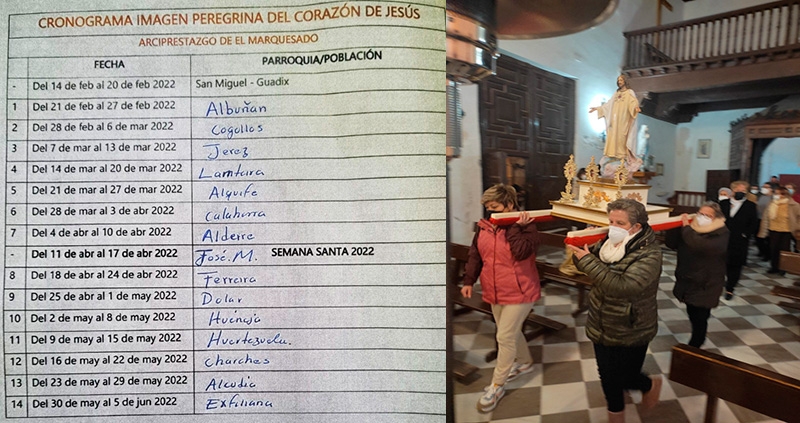 CRONOGRAMA IMAGEN PEREGRINA DEL CORAZÓN DE JESÚS
ARCIPRESTAZGO DE EL MARQUESADO
FECHA PARROQUIA/POBLACIÓN
- Del 14 de feb al 20 de feb 2022 San Miguel - Guadix
1 Del 21 de feb al 27 de feb 2022 Albuñan
2 Del 28 de feb al 6 de mar 2022 Cogollos
3 Del 7 de mar al 13 de mar 2022 Jerez
4 Del 14 de mar al 20 de mar 2022 Lanteira
5 Del 21 de mar al 27 de mar 2022 Alquife
6 Del 28 de mar al 3 de abr 2022 Calahorra
7 Del 4 de abr al 10 de abr 2022 Aldeire
- Del 11 de abr al 17 de abr 2022 José. M. SEMANA SANTA 2022
8 Del 18 de abr al 24 de abr 2022 Ferreira
9 Del 25 de abr al 1 de may 2022 Dolar
10 Del 2 de may al 8 de may 2022 Huéneja
11 Del 9 de may al 15 de may 2022
12 Del 16 de may al 22 de may 2022 Charches
13 Del 23 de may al 29 de may 2022 Alcudia
14 Del 30 de may al 5 de jun 2022 Exfiliana